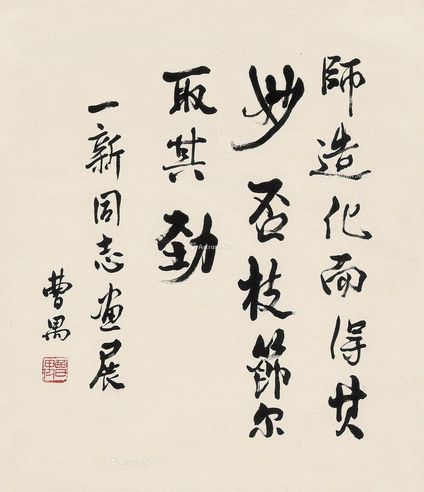 師造化而得其
妙否枝節尔
取其勁
一新同志画展
曹禺